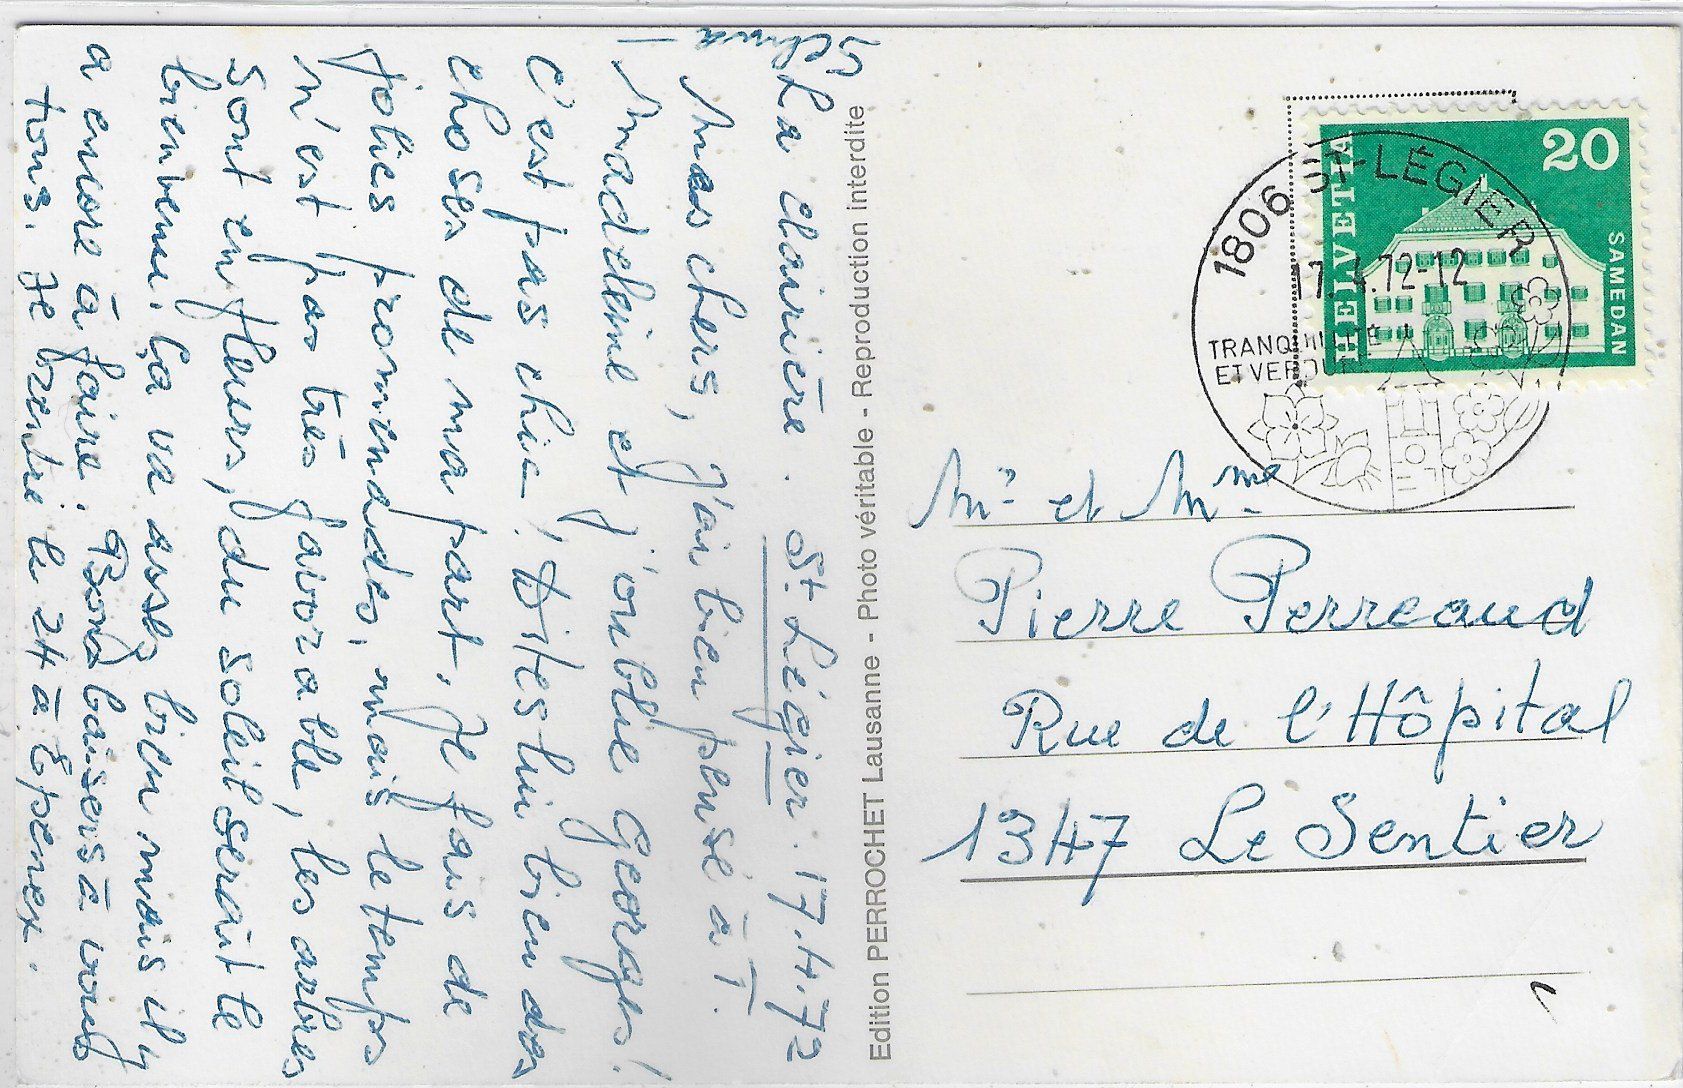 La clairière. St. Légier. 17.4.72
Mes chers, j'ai bien pensé à T.
Madeleine et j'oublie Georges!
C'est pas chic! Dites lui bien des
choses de ma part, je fais de
jolies promenades, mais le temps
n'est pas très favorable, les arbres
sont en fleurs, du soleil serait le
bienvenu. Ça va assez bien mais il y
a encore à faire. Bons baisers à vous
tous. Je rentre le 24 à Epenex.
Edition PERROCHET Lausanne - Photo véritable - Reproduction interdite
HELVETIA
20
SAMEDAN
1806 ST-LÉGIER
17.4.72-12
TRANQUILLITÉ
ET VERDURE
Mr et Mme
Pierre Perreaud
Rue de l'Hôpital
1347 Le Sentier